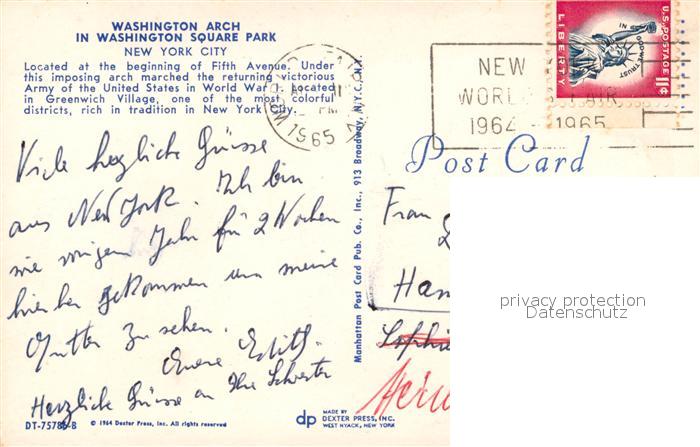 WASHINGTON ARCH
IN WASHINGTON SQUARE PARK
NEW YORK CITY
Located at the beginning of Fifth Avenue. Under
this imposing arch marched the returning victorious
Army of the United States in World War I. Located
in Greenwich Village, one of the most colorful
districts, rich in tradition in New York City.
Viele herzliche Grüsse
aus New York. Ich bin
wie vorigem Jahr für 2 Wochen
hierher gekommen um meine
Mutter zu sehen.
Euere Edith.
Herzliche Grüsse an Ihre Schwester
DT-75786-B
© 1964 Dexter Press, Inc. All rights reserved
dp
MADE BY
DEXTER PRESS, INC.
WEST NYACK, NEW YORK
Manhattan Post Card Pub. Co., Inc., 913 Broadway, N.Y.C., N.Y.
PM
1965
NEW
WORLD FAIR
1964 - 1965
U.S. POSTAGE
LIBERTY
IN GOD WE TRUST
11¢
Post Card
Frau
Han
Sophie
privacy protection
Datenschutz